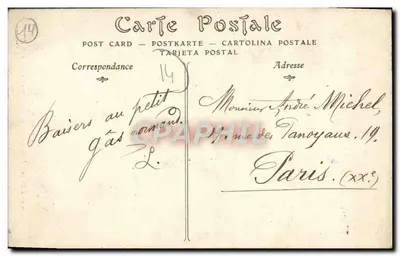 14
Carte Postale
POST CARD — POSTKARTE — CARTOLINA POSTALE
TARJETA POSTAL
Correspondance
Adresse
14
Baisers au petit
gâs normand.
L.
Monsieur André Michel,
rue des Panoyaux. 19.
Paris. (XXe)
CPAPHIL